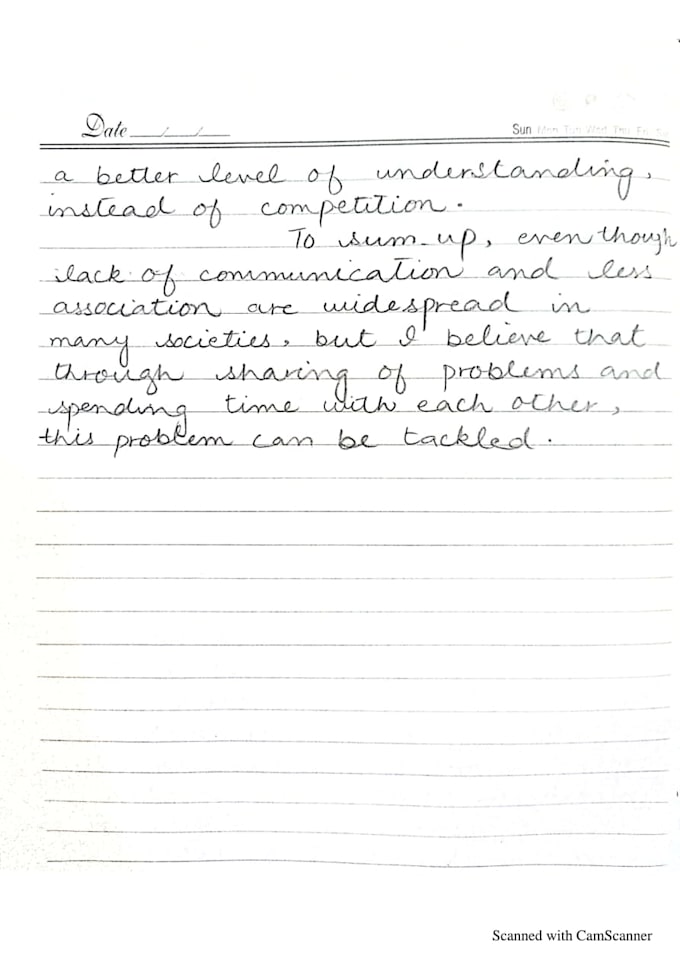 Date __/__/__
Sun Mon Tue Wed Thu Fri Sa
a better level of understanding,
instead of competition.
To sum-up, even though
lack of communication and less
association are widespread in
many societies, but I believe that
through sharing of problems and
spending time with each other,
this problem can be tackled.
Scanned with CamScanner